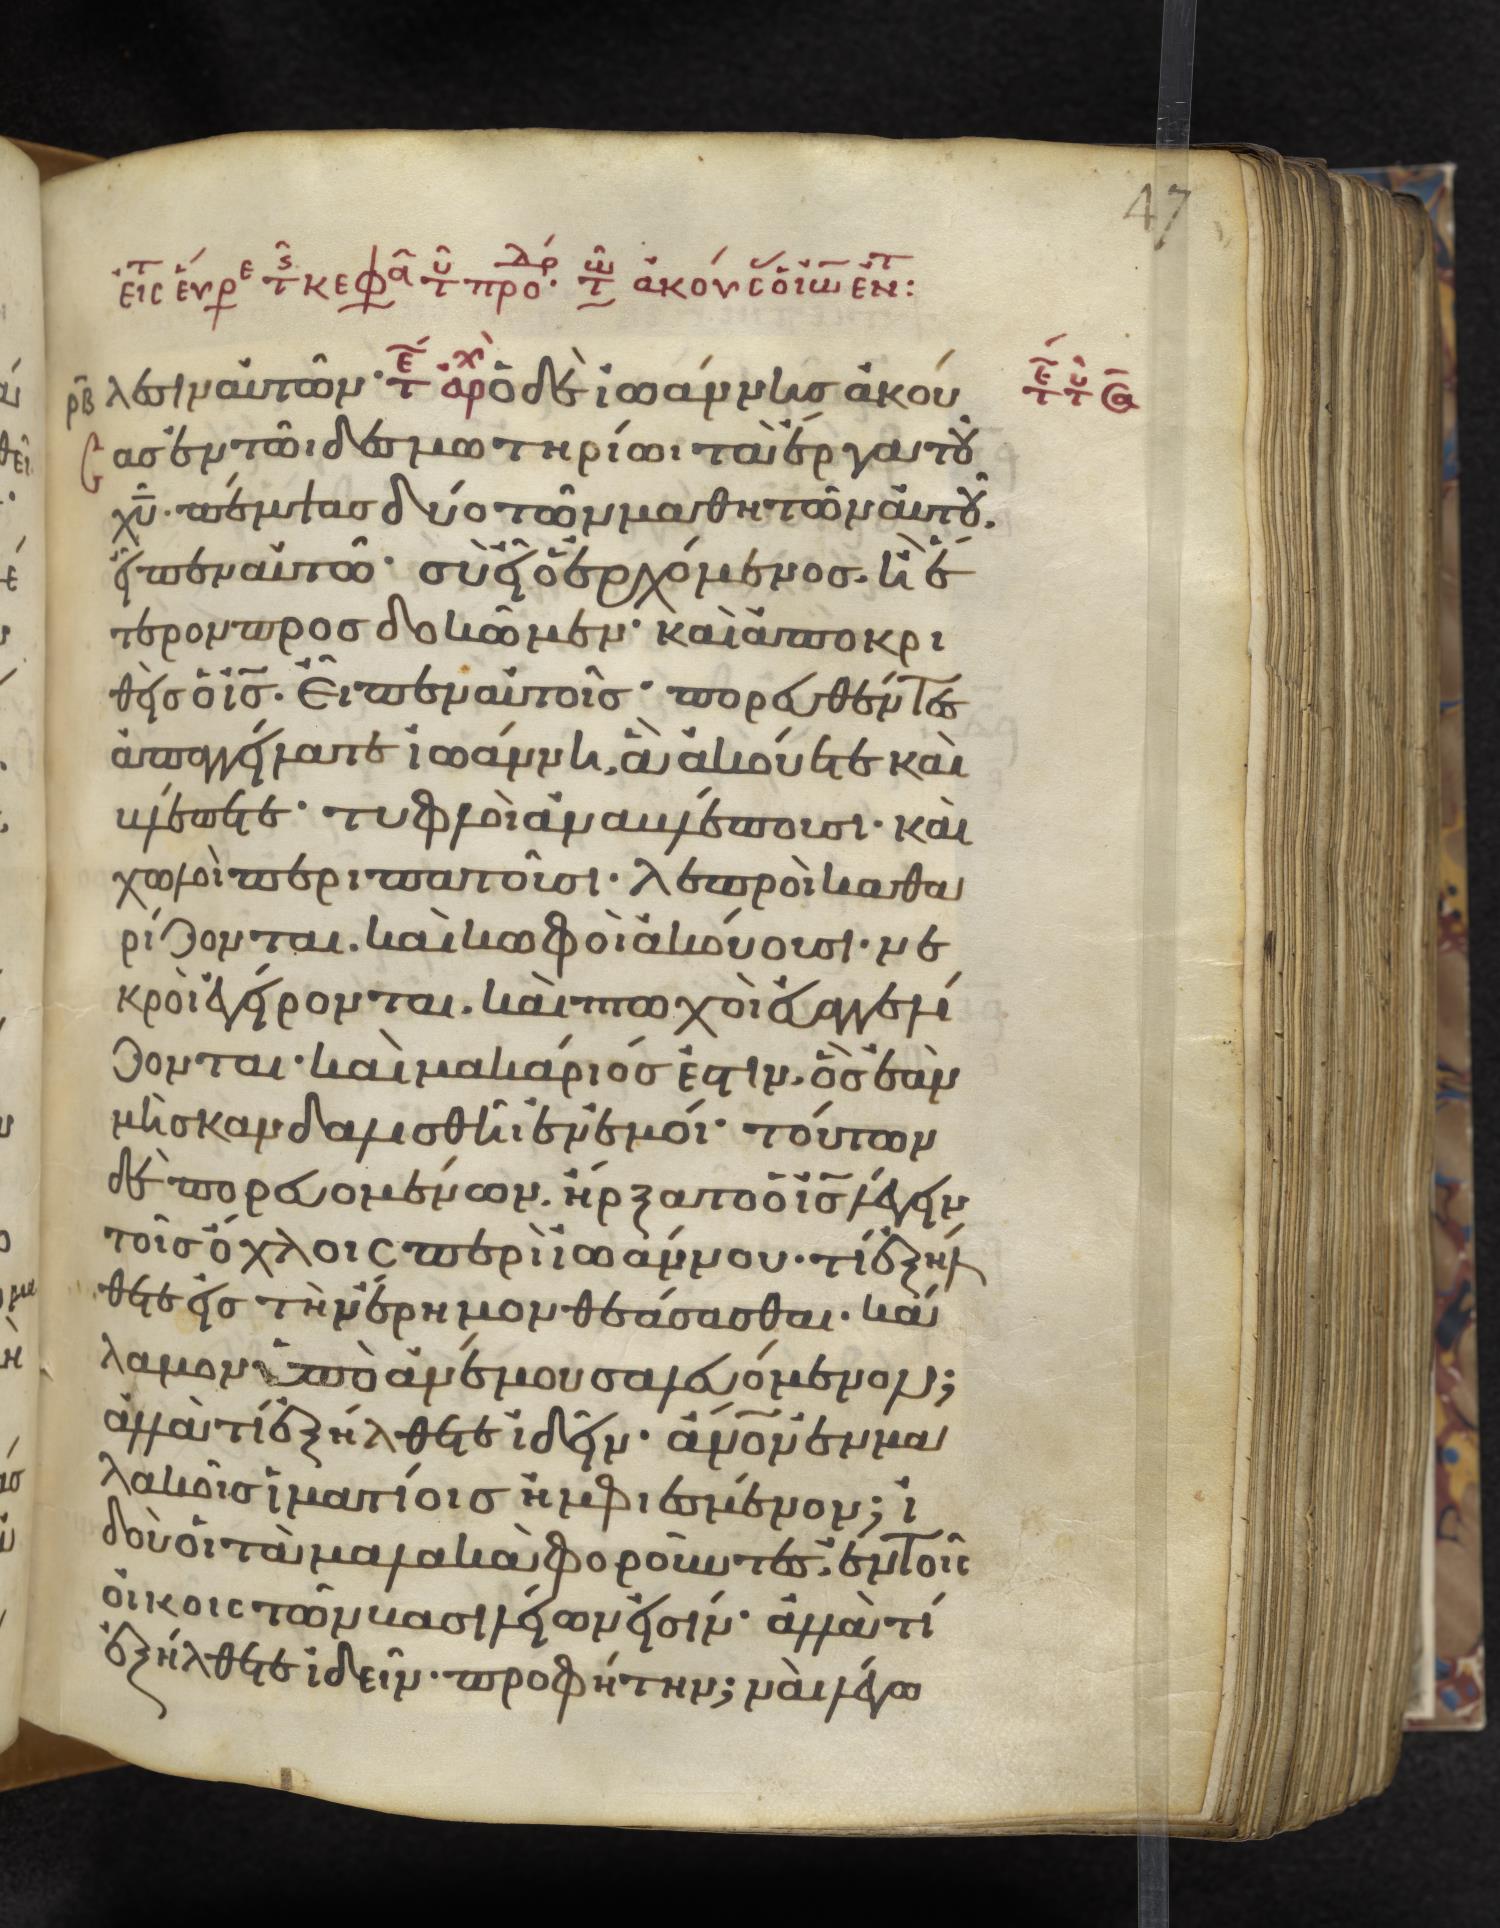 47
λεσιν αὐτῶν· τε αρχ ὁ δὲ ἰωάννης ἀκού
ρβ
ασ ἐν τῶι δεσμωτηρίωι τὰ ἔργα τοῦ
χυ̅· πέμψας δύο τῶν μαθητῶν αὐτοῦ.
εἶπεν αὐτῶ· σὺ εἶ ὁ ἐρχόμενος. ἢ ἕ
τερον προσδοκῶμεν· καὶ ἀποκρι
θεὶς ὁ ι̅ς̅. Εἶπεν αὐτοῖς· πορευθέντες
ἀπαγγείλατε ἰωάννη, ἃ ἀκούετε καὶ
βλέπετε· τυφλοὶ ἀναβλέπουσι· καὶ
χωλοὶ περιπατοῦσι· λεπροὶ καθα
ρίζονται. καὶ κωφοὶ ἀκούουσι· νε
κροὶ ἐγείρονται. καὶ πτωχοὶ εὐαγγελί
ζονται· καὶ μακάριός ἐστιν. ὃς ἐὰν
μὴ σκανδαλισθῆι ἐν ἐμοί· τούτων
δὲ πορευομένων. ἤρξατο ὁ ι̅ς̅ λέγειν
τοῖς ὄχλοις περὶ ἰωάννου· τί ἐξήλ
θετε εἰς τὴν ἔρημον θεάσασθαι· κά
λαμον ὑπὸ ἀνέμου σαλευόμενον;
ἀλλὰ τί ἐξήλθετε ἰδεῖν· ἄνο̅ν ἐν μα
λακοῖς ἱματίοις ἠμφιεσμένον; ἰ
δοὺ οἱ τὰ μαλακὰ φοροῦντες. ἐν τοῖς
οἴκοις τῶν βασιλείων εἰσίν· ἀλλὰ τί
ἐξήλθετε ἰδεῖν· προφήτην; ναὶ λέγω